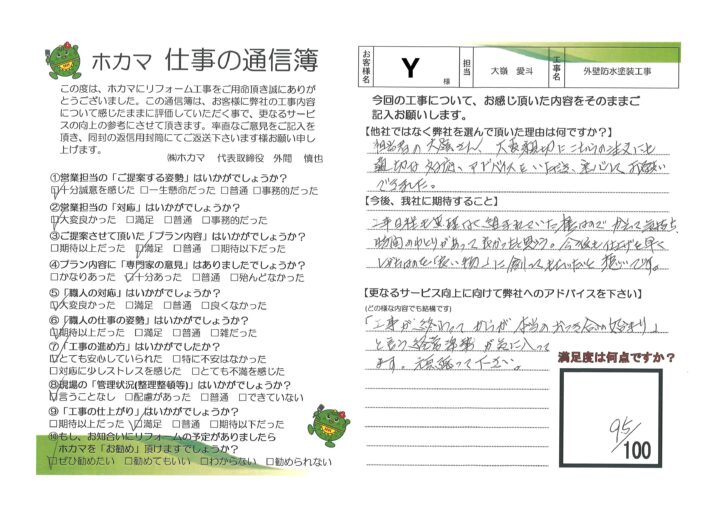 ホカマ 仕事の通信簿
この度は、ホカマにリフォーム工事をご用命頂き誠にありが
とうございました。この通信簿は、お客様に弊社の工事内容
について感じたままに評価していただく事で、更なるサービ
スの向上の参考にさせて頂きます。率直なご意見をご記入を
頂き、同封の返信用封筒にてご返送下さいます様お願い申し
上げます。
㈱ホカマ 代表取締役 外間 慎也
①営業担当の「ご提案する姿勢」はいかがでしょうか?
□十分誠意を感じた □一生懸命だった □普通 □事務的だった
②営業担当の「対応」はいかがでしょうか?
□大変良かった □満足 □普通 □事務的だった
③ご提案させて頂いた「プラン内容」はいかがでしょうか?
□期待以上だった □満足 □普通 □期待以下だった
④プラン内容に「専門家の意見」はありましたでしょうか?
□かなりあった □十分あった □普通 □殆んどなかった
⑤「職人の対応」はいかがでしょうか?
□大変良かった □満足 □普通 □良くなかった
⑥「職人の仕事の姿勢」はいかがでしょうか?
□期待以上だった □満足 □普通 □雑だった
⑦「工事の進め方」はいかがでしたか?
□とても安心していられた □特に不安はなかった
□対応に少しストレスを感じた □とても不満を感じた
⑧現場の「管理状況(整理整頓等)」はいかがでしょうか?
□言うことなし □配慮があった □普通 □できていない
⑨「工事の仕上がり」はいかがでしょうか?
□期待以上だった □満足 □普通 □期待以下だった
⑩もし、お知合いにリフォームの予定がありましたら
ホカマを「お勧め」頂けますでしょうか?
□ぜひ勧めたい □勧めてもいい □わからない □勧められない
お客様名 Y 様 担当 大嶺 愛斗 工事名 外壁防水塗装工事
今回の工事について、お感じ頂いた内容をそのままご
記入お願いします。
【他社ではなく弊社を選んで頂いた理由は何ですか?】
担当者の大嶺さんが、大変親切にこちらの注文にも
親切な対応、アドバイスをいただき、安心してお願い
できました。
【今後、我社に期待すること】
時間のゆとりがあって良かったと思う。今後も仕上げを早く
【更なるサービス向上に向けて弊社へのアドバイスを下さい】
(どの様な内容でも結構です)
「工事が終わってからが本当のお付き合いの始まり」
と言う経営 が気に入って
ます。頑張って下さい。
満足度は何点ですか?
95
/100